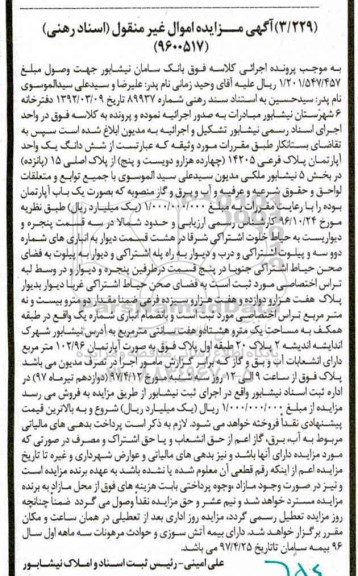 (۳/۲۲۹) آگهی مــزایده اموال غیر منقول (اسناد رهنی)
(۹۶۰۰۵۱۷)
به موجب پرونده اجرائی کلاسه فوق بانک سامان نیشابور جهت وصول مبلغ
۱/۲۰۱/۵۴۷/۴۵۷ ریال علیه آقای وحید زمانی نام پدر: علیرضا و سیدعلی سیدالموسوی
نام پدر: سیدحسین به استناد سند رهنی شماره ۸۹۹۳۷ تاریخ ۱۳۹۲/۰۳/۰۹ دفترخانه
۶ شهرستان نیشابور مبادرات به صدور اجرائیه نموده و پرونده به کلاسه فوق در واحد
اجرای اسناد رسمی نیشابور تشکیل و اجرائیه به مدیون ابلاغ شده است سپس به
تقاضای بستانکار طبق مقررات مورد وثیقه که عبارتست از شش دانگ یک واحد
آپارتمان پلاک فرعی ۱۴۲۰۵ (چهارده هزارو دویست و پنج) از پلاک اصلی ۱۵ (پانزده)
در بخش ۵ نیشابور ملکی مدیون سیدعلی سید الموسوی با جمیع توابع و متعلقات
لواحق و حقوق شرعیه و عرفیه و آب و برق و گاز منصوبه که بصورت یک باب آپارتمان
بوده را با رعایت مقررات به مبلغ ۱/۰۰۰/۰۰۰/۰۰۰ (یک میلیارد ریال) طبق نظریه
مورخ ۹۶/۱۰/۲۴ کارشناس رسمی ارزیابی و حدود شمالا در سه قسمت پنجره و
دیواریست به حیاط خلوت اشتراکی شرقا در هشت قسمت دیوار به انباری های شماره
دوو سه و پیلوت اشتراکی و درب و دیوار به راه پله اشتراکی و دیوار به پیلوت به فضای
صحن حیاط اشتراکی جنوبا در پنج قسمت درطرفین پنجره و دیوار و در وسط لبه
تراس اختصاصی مورد ثبت است به فضای صحن حیاط اشتراکی غربا دیوار بدیوار
پلاک هفت هزارو دوازده و هفت هزارو سیزده فرعی
متر مربع تراس اختصاصی مورد ثبت است و بانضمام انباری شماره یک واقع در طبقه
همکف به مساحت یک مترو هشتادو هفت سانتی مترمربع به آدرس نیشابور شهرک
اندیشه اندیشه ۲ پلاک ۲۰ طبقه اول پلاک فوق به صورت آپارتمان ۱۰۲/۹۶ متر
دارای انشعابات آب و برق و گاز که برابر گزارش مامور اجرا در تصرف مدیون می باشد
پلاک فوق از ساعت ۹ الی ۱۲ روز سه شنبه مورخ ۹۷/۴/۱۲ (دوازدهم تیرماه ۹۷) در
اداره ثبت اسناد نیشابور واقع در اجرای ثبت نیشابور از طریق مزایده به فروش می رسد
مزایده از مبلغ ۱/۰۰۰/۰۰۰/۰۰۰ ریال (یک میلیارد ریال) شروع و به بالاترین قیمت
پیشنهادی نقدا فروخته می شود. لازم به ذکر است پرداخت بدهی های مالیاتی
مربوط به آب، برق، گاز اعم از حق انشعاب و یا حق اشتراک و مصرف در صورتی که
مورد مزایده دارای آنها باشد و نیز بدهی های مالیاتی و عوارض شهرداری و غیره تا تاریخ
مزایده اعم از اینکه رقم قطعی آن معلوم شده یا نشده باشد به عهده برنده مزایده است
و نیز در صورت وجود مازاد، وجوه پرداختی بابت هزینه های فوق از محل مازاد به برنده
مزایده مسترد خواهد شد و نیم عشر و حق مزایده نقدا وصول می گردد. ضمنا چنانچه
روز مزایده تعطیل رسمی گردد، مزایده روز اداری بعد از تعطیلی در همان ساعت و مکان
مقرر برگزار خواهد شد. دارای بیمه آتش سوزی و حوادث مرهونات سه ماهه اول سال
۹۶ بیمه سامان تاتاریخ ۹۷/۴/۲۵ می باشد.
علی امینی- رئیس ثبت اسناد و املاک نیشابور